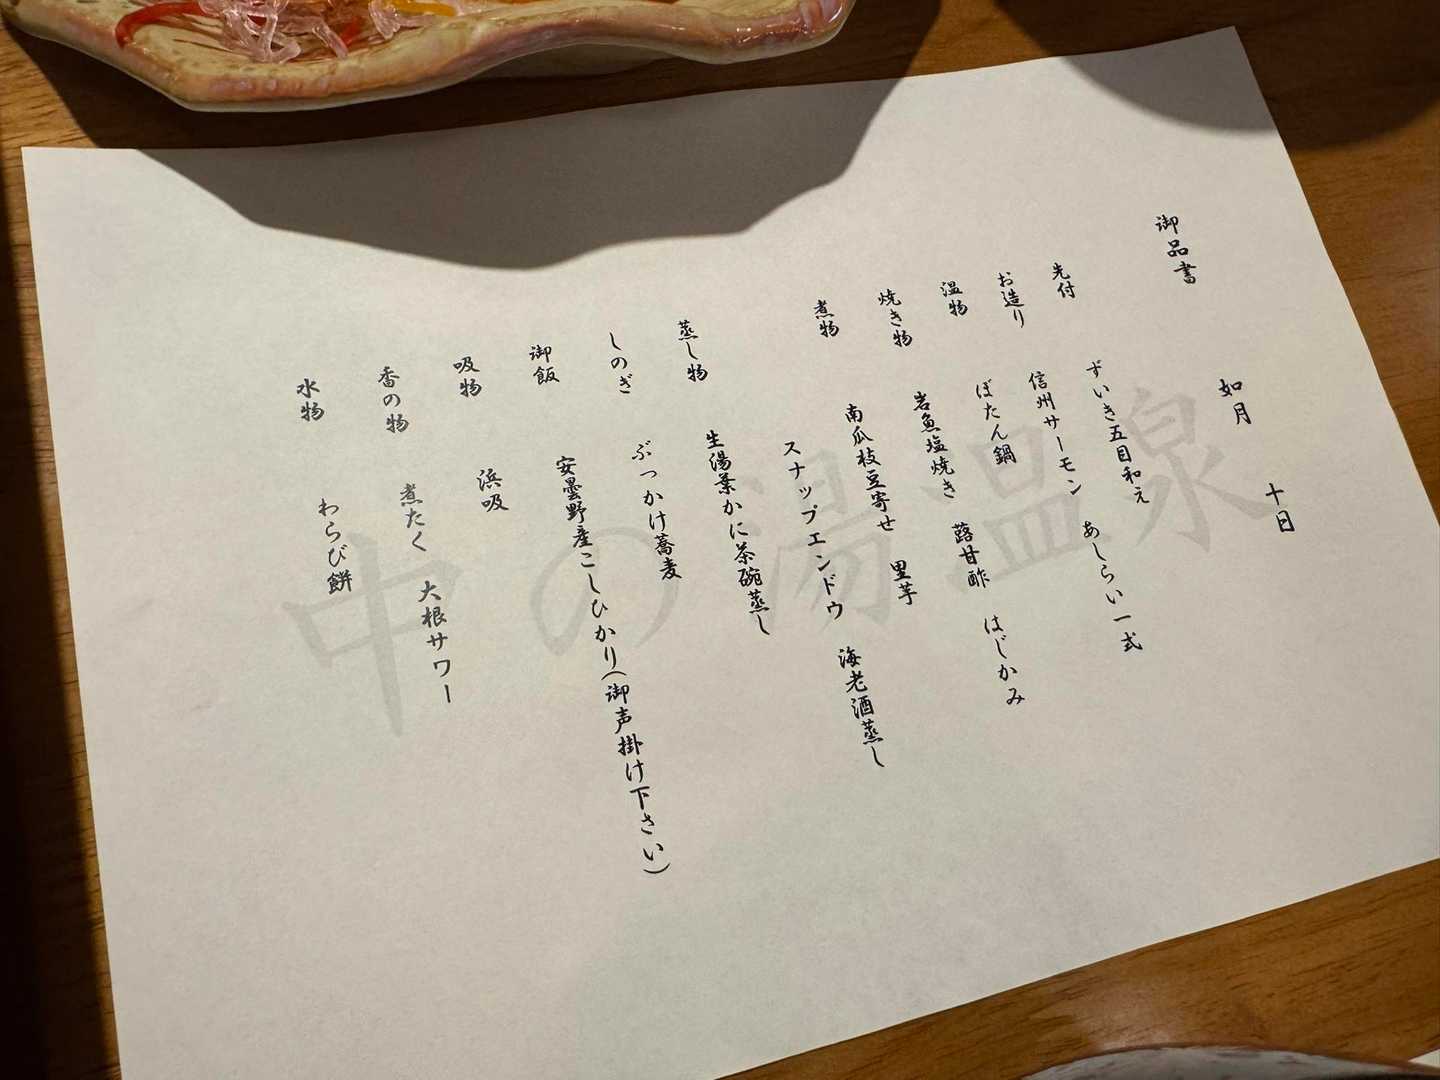 御品書 如月 十日
先付 ずいき五目和え
お造り 信州サーモン あしらい一式
温物 ぼたん鍋
焼き物 岩魚塩焼き 蕗甘酢 はじかみ
煮物 南瓜枝豆寄せ 里芋
スナップエンドウ 海老酒蒸し
蒸し物 生湯葉かに茶碗蒸し
しのぎ ぶっかけ蕎麦
御飯 安曇野産こしひかり(御声掛け下さい)
吸物 浜吸
香の物 煮たく 大根サワー
水物 わらび餅
中の湯温泉